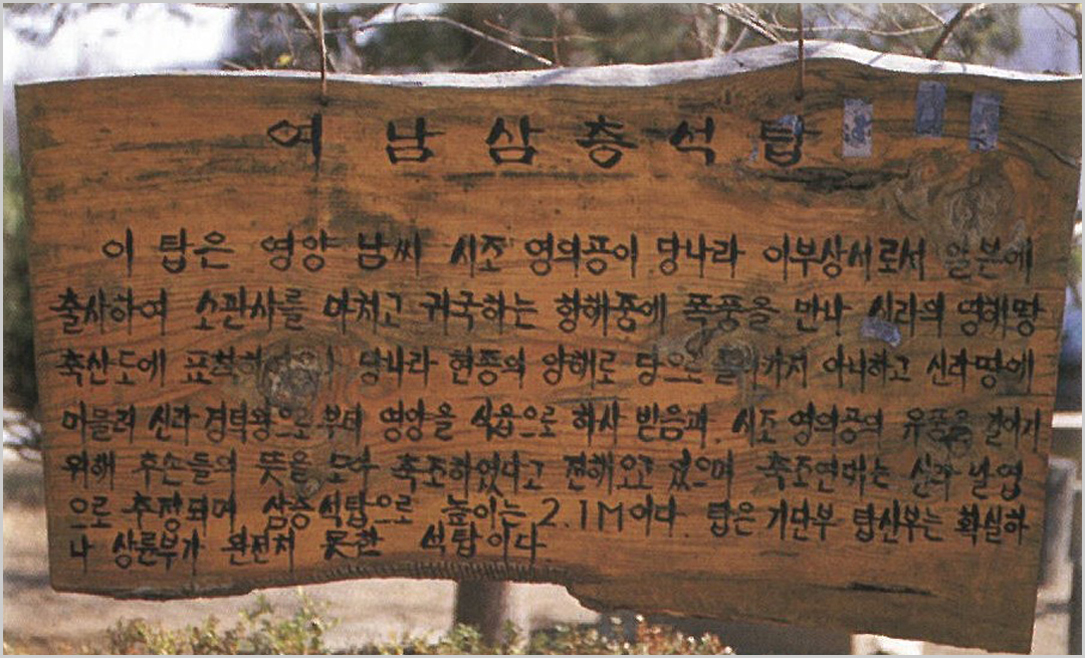 여남삼층석탑
이 탑은 영양 남씨 시조 영의공이 당나라 이부상서로서 일본에
출사하여 소관사를 마치고 귀국하는 항해중에 폭풍을 만나 신라의 영해땅
축산도에 표착하 당나라 현종의 양해로 당으로 아니하고 신라땅에
머물러 신라 경덕왕으로부터 영양을 식읍으로 하사 받음과 시조 영의공의 유풍을 길이
위해 후손들의 뜻을 모아 축조하였다고 전해오고 있으며 축조연대는 신라 말엽
으로 추정되며 삼층석탑으로 높이는 2.1M이다 탑은 기단부 탑신부는 확실하
나 상륜부가 완전치 못한 석탑이다